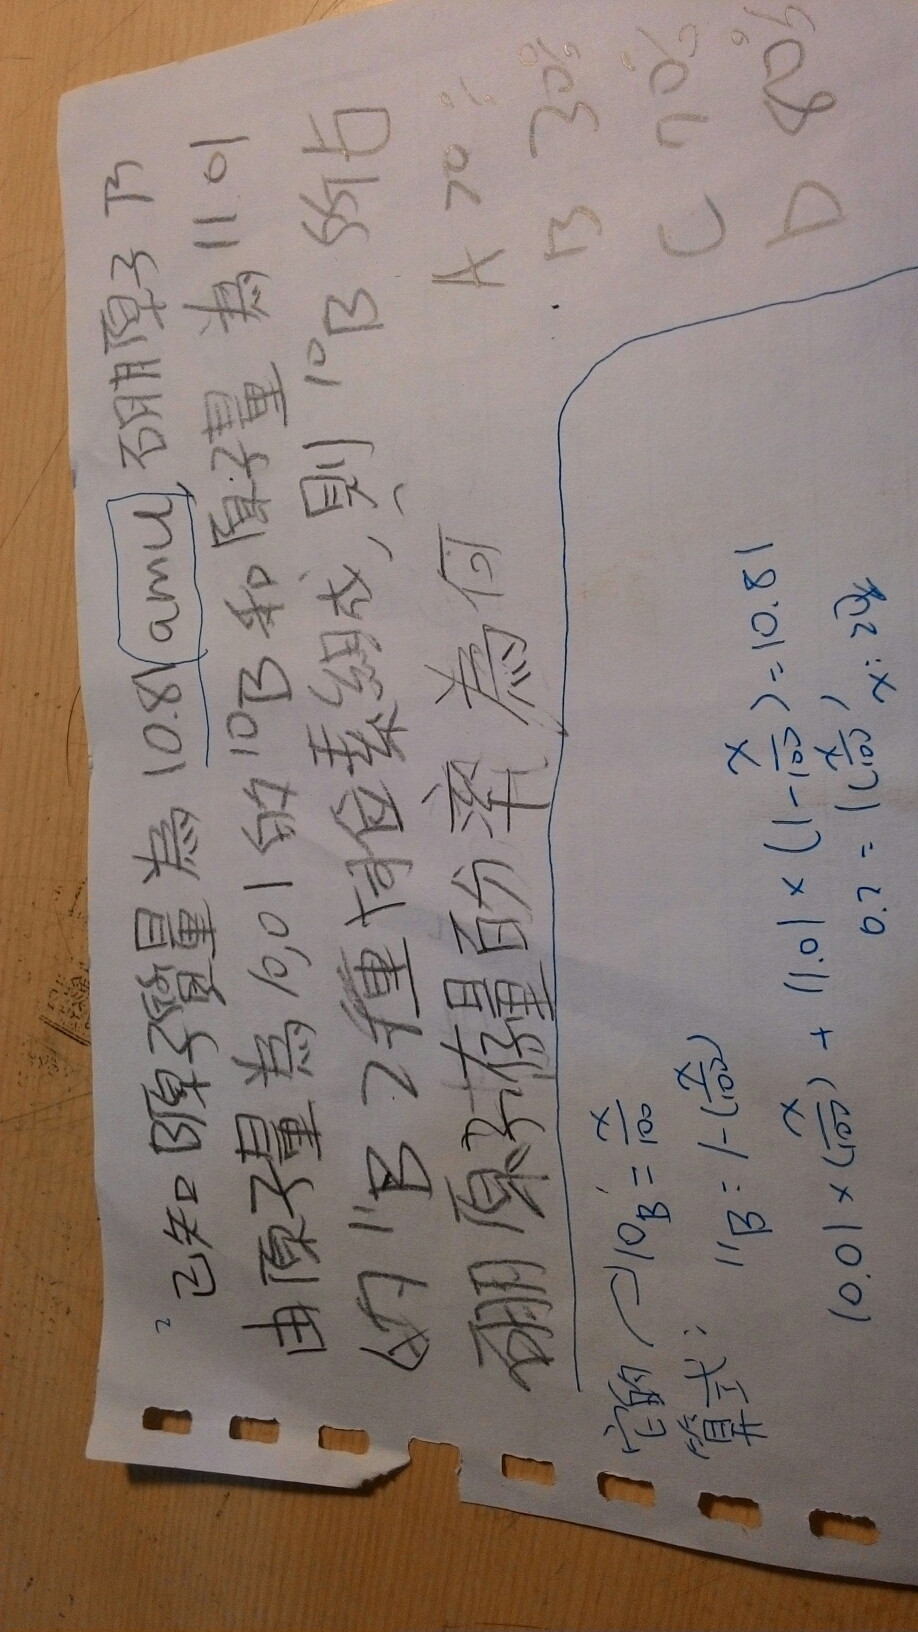 2 已知 B原子質量為 10.81 amu, 硼原子乃
由原子量為 10.01 的 ¹⁰B 和原子量為 11.01
的 ¹¹B 2種同位素組成, 則 ¹⁰B 所占
硼原子存量百分率為何
A 20%
B 30%
C 70%
D 80%
它的 ¹⁰B = x/100
算式: ¹¹B = 1-(x/100)
10.01×(x/100) + 11.01×(1-x/100) = 10.81
0.2 = 1(x/100)